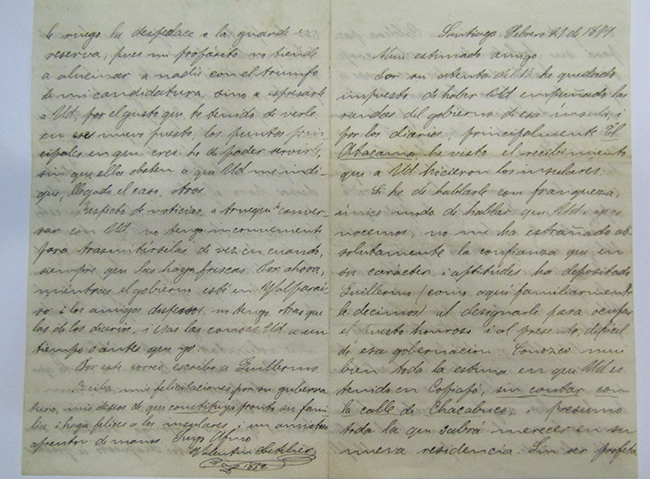 Santiago Febrero 29 de
Mui estimado amigo
Por su atenta del he quedado
impuesto de haber Ud empuñado las
riendas del gobierno de esa ínsula, i
por los diarios, principalmente El
Atacama he visto el recibimiento
que a Ud hicieron los insulares.
Si he de hablarle con franqueza,
único modo de hablar que Ud. i yo co-
nocemos, no me ha estrañado ab-
solutamente la confianza que en
su carácter i aptitudes ha depositado
Guillermo (como aquí familiarmente
le decimos) al designarle para ocupar
el puesto honroso i al presente difícil
de esa gobernacion. Conozco mui
bien toda la estima en que Ud es
tenido en Copiapó, sin contar con
la calle de Chacabuco, i presumo
toda la que sabrá merecer en su
nueva residencia. Sin ser profeta
le ruego ha a la guarde en
reserva, pues mi propósito no tiende
a alucinar a nadie con el triunfo
de mi candidatura, sino a espresarle
a Ud, por el gusto que he tenido de verle
en ese nuevo puesto, los puntos prin-
cipales en que creo he de poder servirle,
sin que ellos obsten a que Ud me indi-
que, llegado el caso, otros.
Respecto de noticias, a conver-
sar con Ud no tengo inconveniente
para trasmitírselas de vez en cuando,
siempre que las haya frescas. Por ahora,
mientras el gobierno esté en Valparaí-
so i los amigos dispersos, no tengo otras que
las de los diarios, i esas las conoce Ud a un
tiempo o ántes que yo.
Por este correo escribo a Guillermo
Reciba mis felicitaciones por su guberna-
tura, mis deseos de que constituya pronto su fami-
lia i haga felices a los insulares i un amistoso
apreton de manos. Suyo Afmo
Valentin Letelier